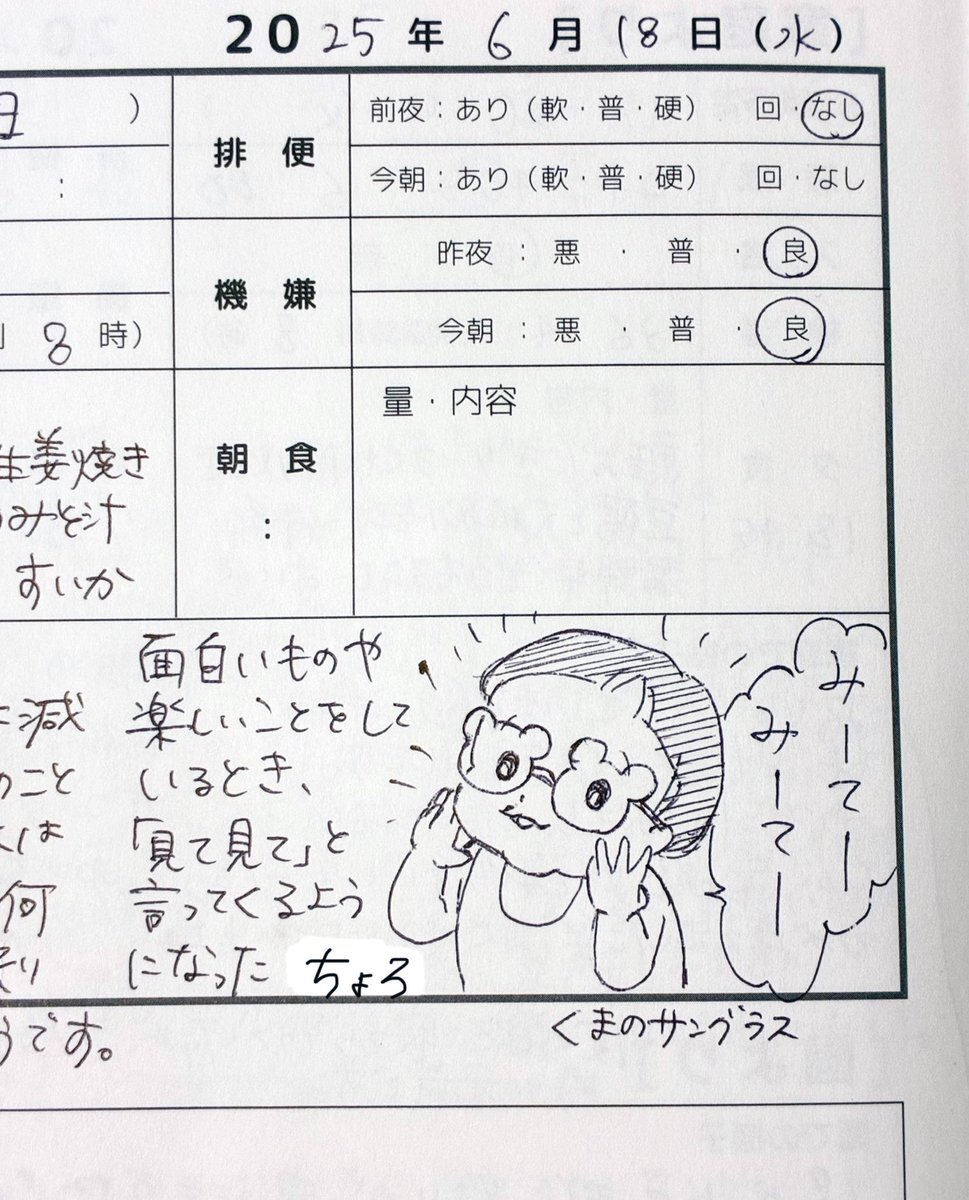 2025年 6月 18日(水)
日 )
排便
前夜：あり（軟・普・硬） 回・なし
:
今朝：あり（軟・普・硬） 回・なし
機嫌
昨夜：悪 ・ 普 ・ 良
8 時)
今朝：悪 ・ 普 ・ 良
朝食
:
量・内容
生姜焼き
みそ汁
すいか
減
のこと
は
何
り
うです。
面白いものや
楽しいことをして
いるとき、
「見て見て」と
言ってくるよう
になった ちょろ
みーてー
みーてー
くまのサングラス